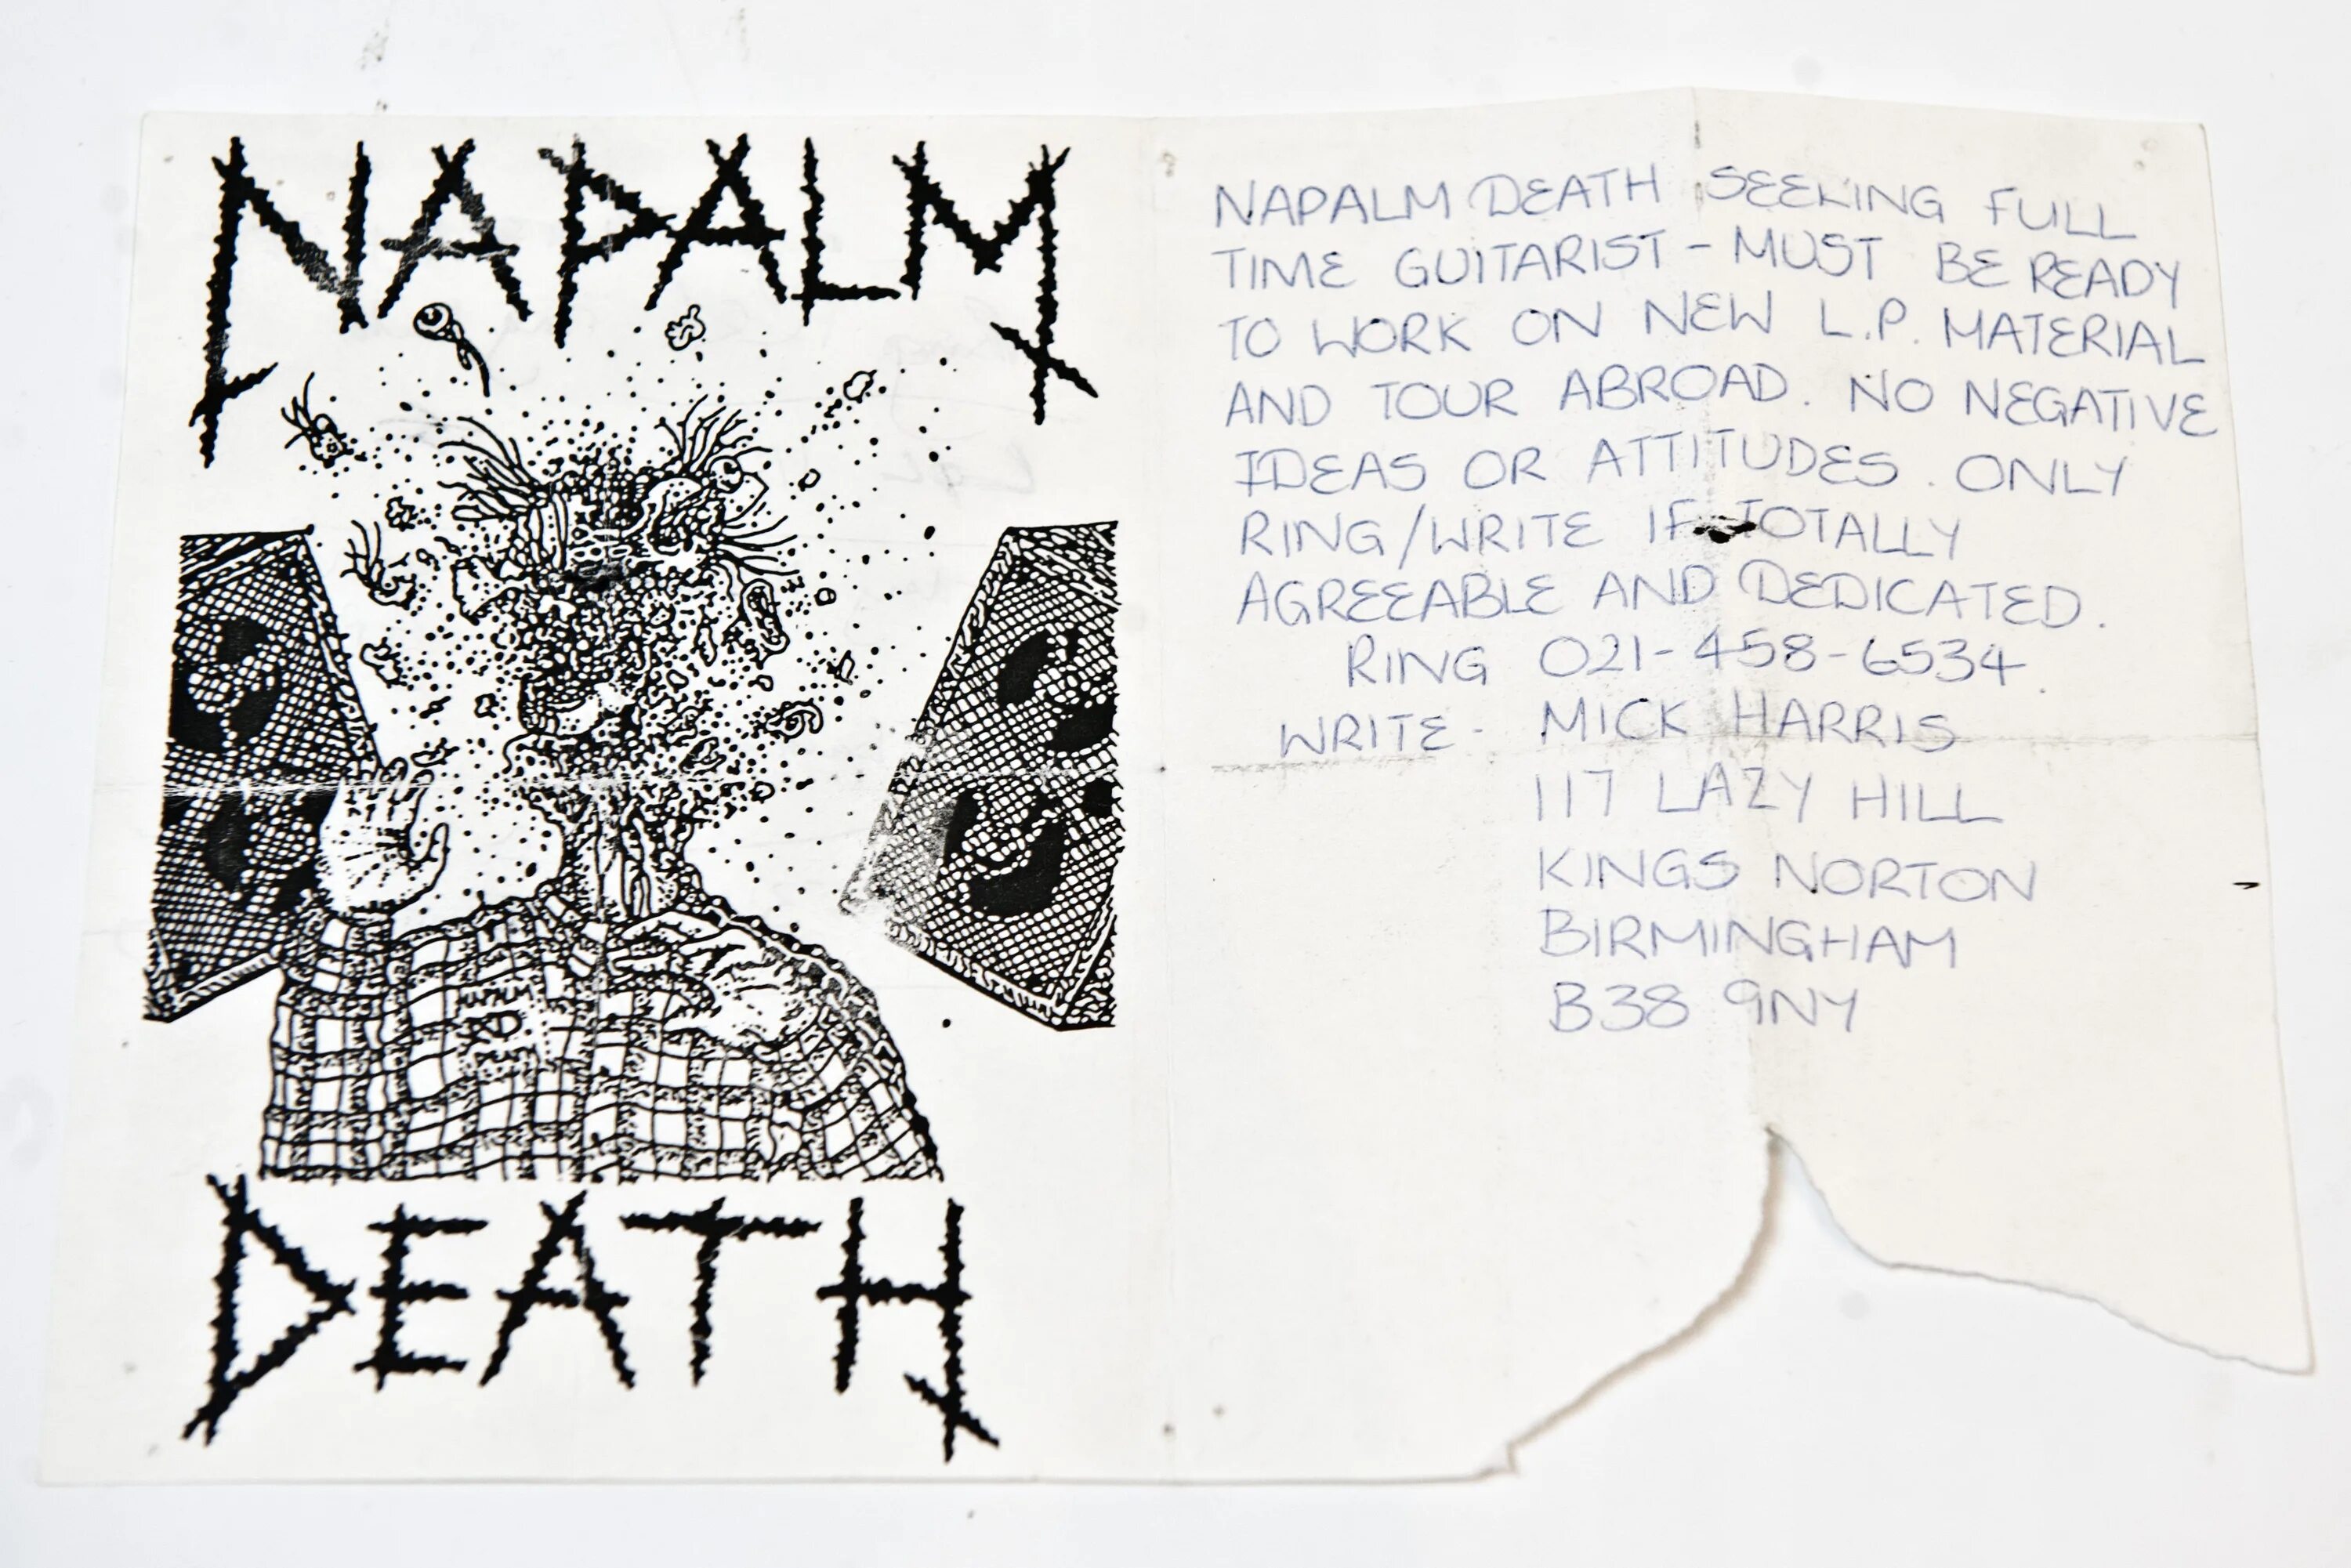 NAPALM
DEATH
NAPALM DEATH SEEKING FULL
TIME GUITARIST - MUST BE READY
TO WORK ON NEW L.P. MATERIAL
AND TOUR ABROAD. NO NEGATIVE
IDEAS OR ATTITUDES. ONLY
RING/WRITE IF TOTALLY
AGREEABLE AND DEDICATED.
RING 021-458-6534.
WRITE - MICK HARRIS
117 LAZY HILL
KINGS NORTON
BIRMINGHAM
B38 9NY